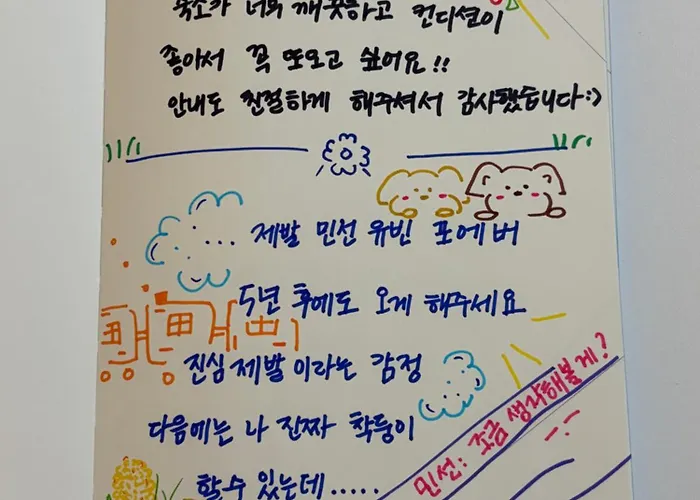 숙소가 너무 깨끗하고 컨디션이
좋아서 꼭 또오고 싶어요!!
안내도 친절하게 해주셔서 감사했습니다:)
... 제발 민선 유빈 포에버
5년 후에도 오게 해주세요
진심 제발 이라는 감정
다음에는 나 진짜 착둥이
할수 있는데.....
민선: 조금 생각해볼게?